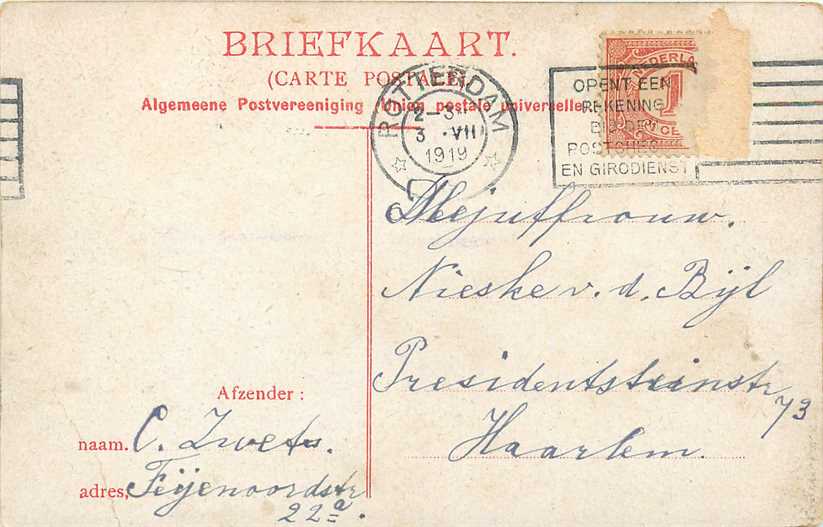 BRIEFKAART.
(CARTE POSTALE)
Algemeene Postvereeniging Union postale universelle
ROTTERDAM
2-3
3 VII
1919
NEDERLA
1
CE
OPENT EEN
REKENING
BIJ DEN
POSTCHEQ
EN GIRODIENST
Mejuffrouw.
Nieske v. d. Bijl
Presidentsteinstr
73
Haarlem.
Afzender:
naam. C. Zwets.
adres, Feijenoordstr
22a.